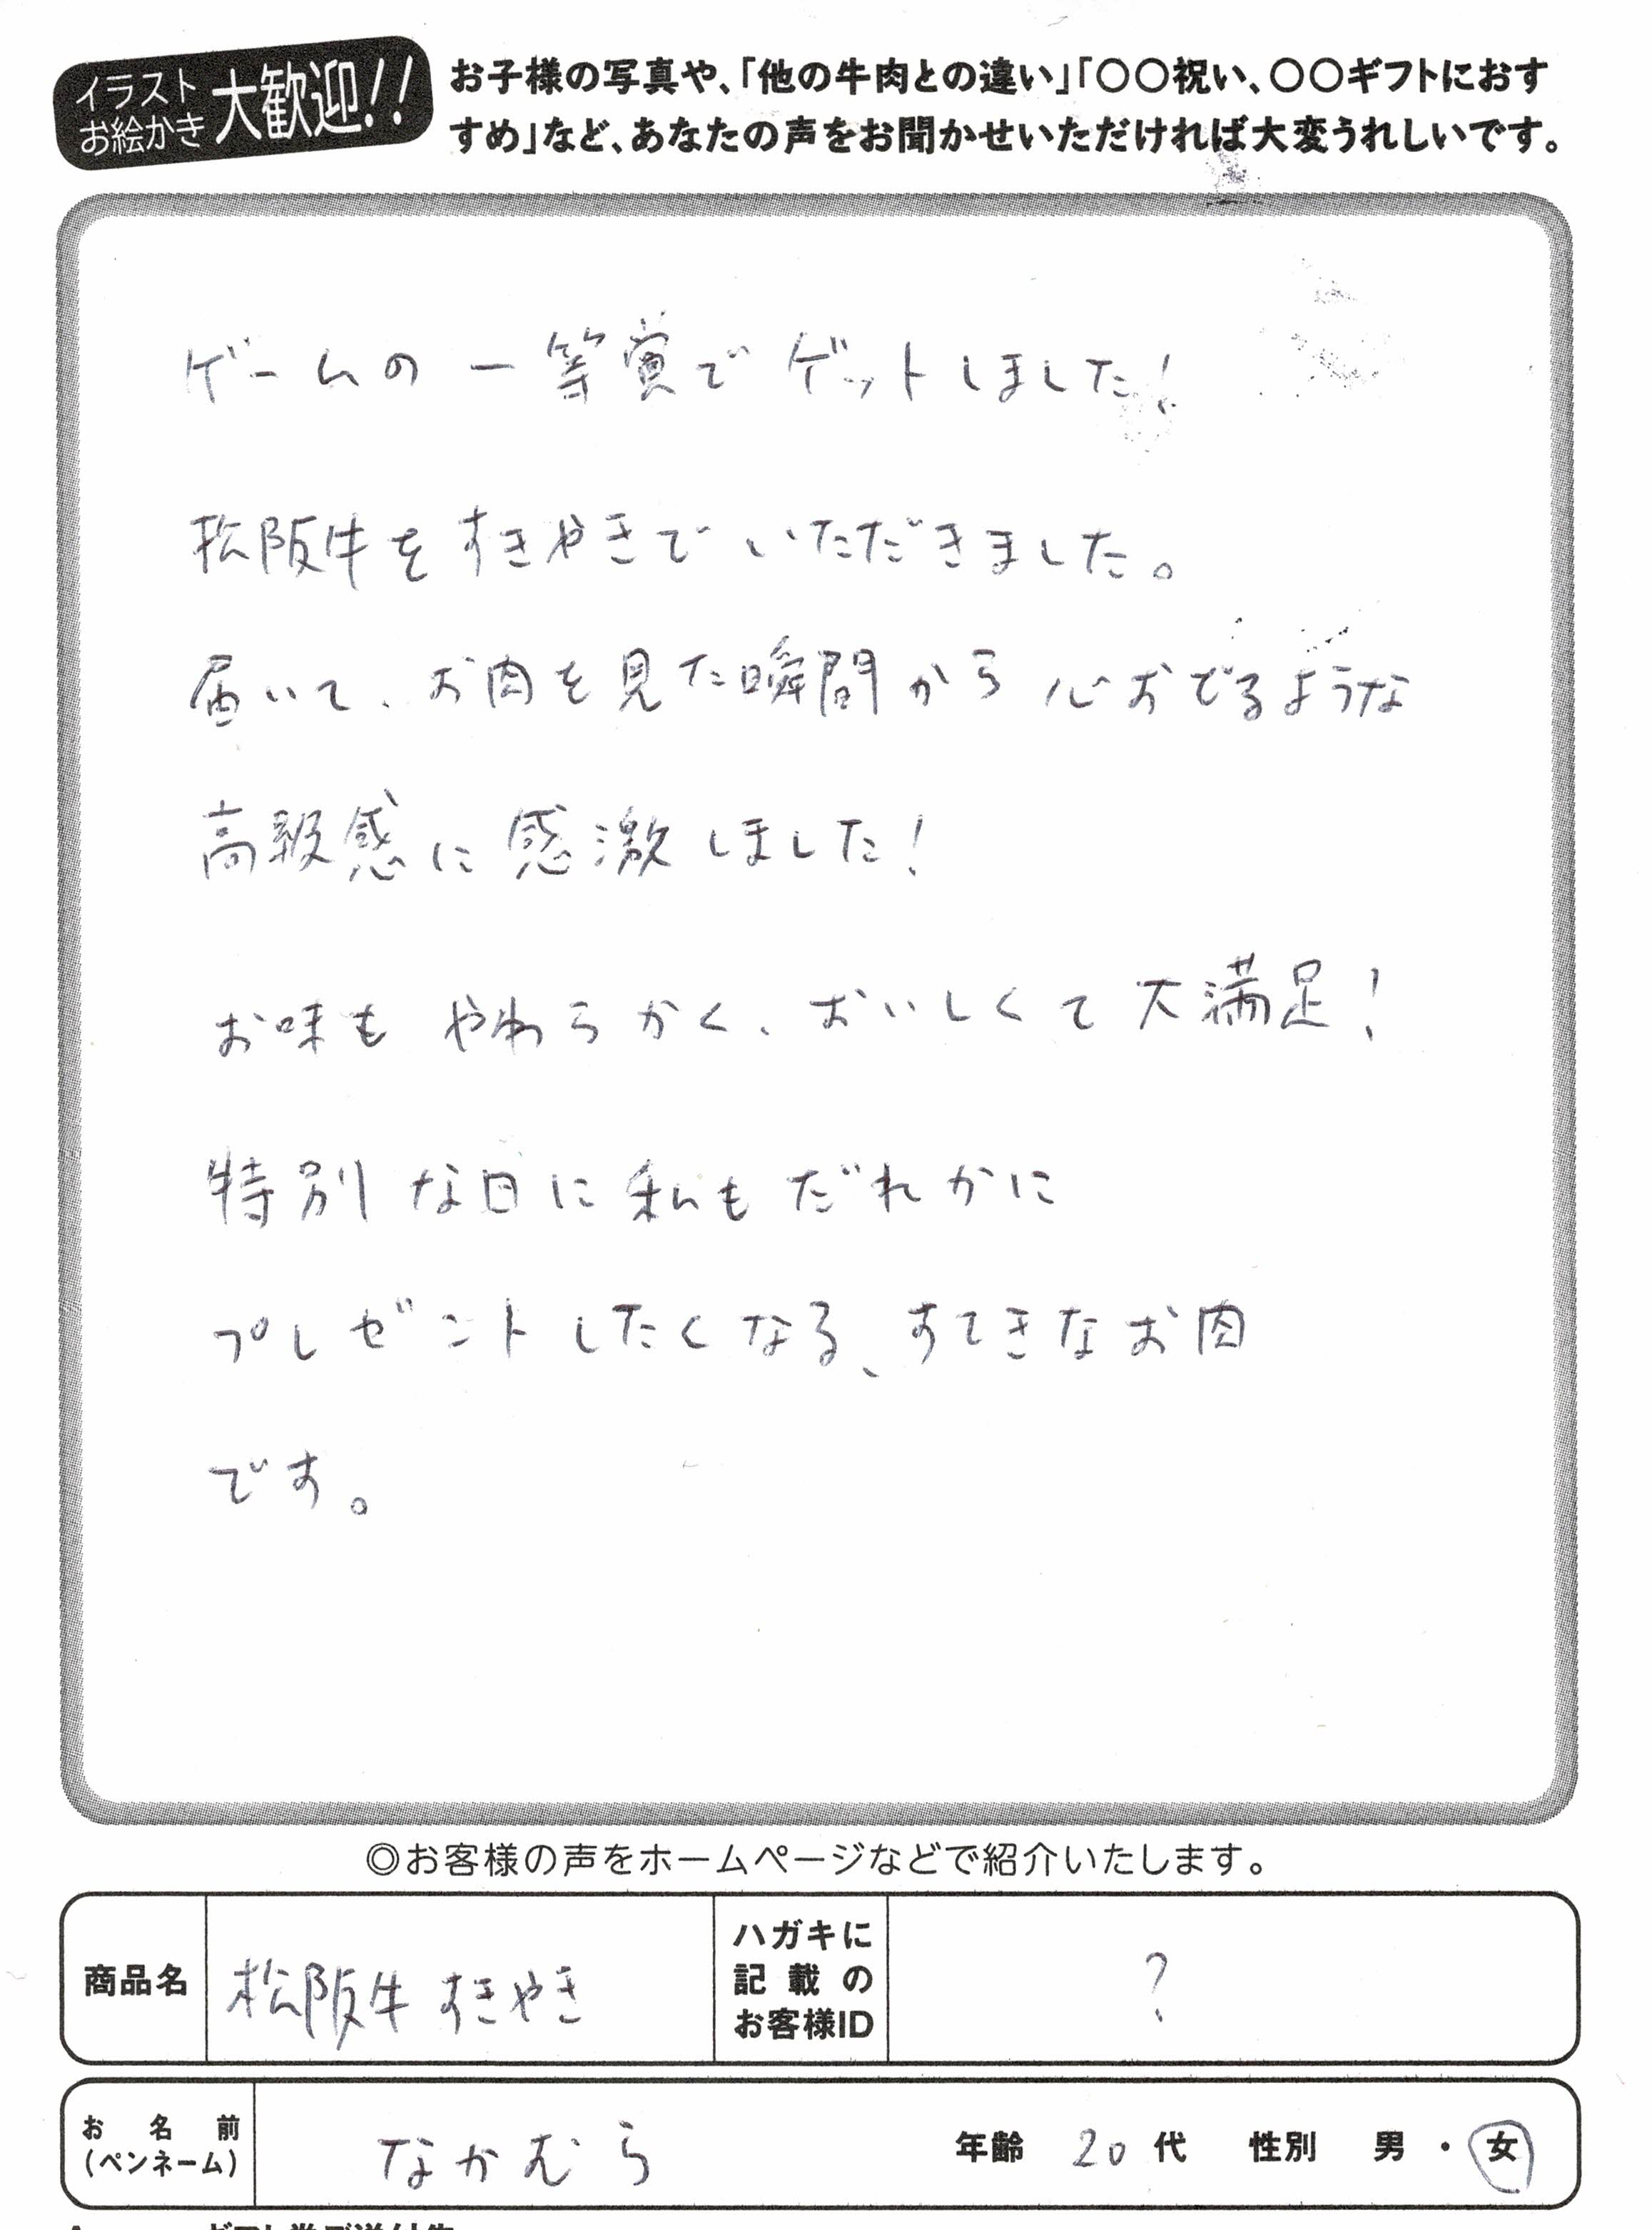 イラスト
お絵かき
大歓迎!!
お子様の写真や、「他の牛肉との違い」「〇〇祝い、〇〇ギフトにおす
すめ」など、あなたの声をお聞かせいただければ大変うれしいです。
ゲームの一等賞でゲットしました!
松阪牛をすきやきでいただきました。
届いて、お肉を見た瞬間から心おどるような
高級感に感激しました!
お味もやわらかく、おいしくて大満足!
特別な日に私もだれかに
プレゼントしたくなる、すてきなお肉
です。
◎お客様の声をホームページなどで紹介いたします。
商品名
松阪牛すきやき
ハガキに
記載の
お客様ID
?
お名前
(ペンネーム)
なかむら
年齢 20代 性別 男・女